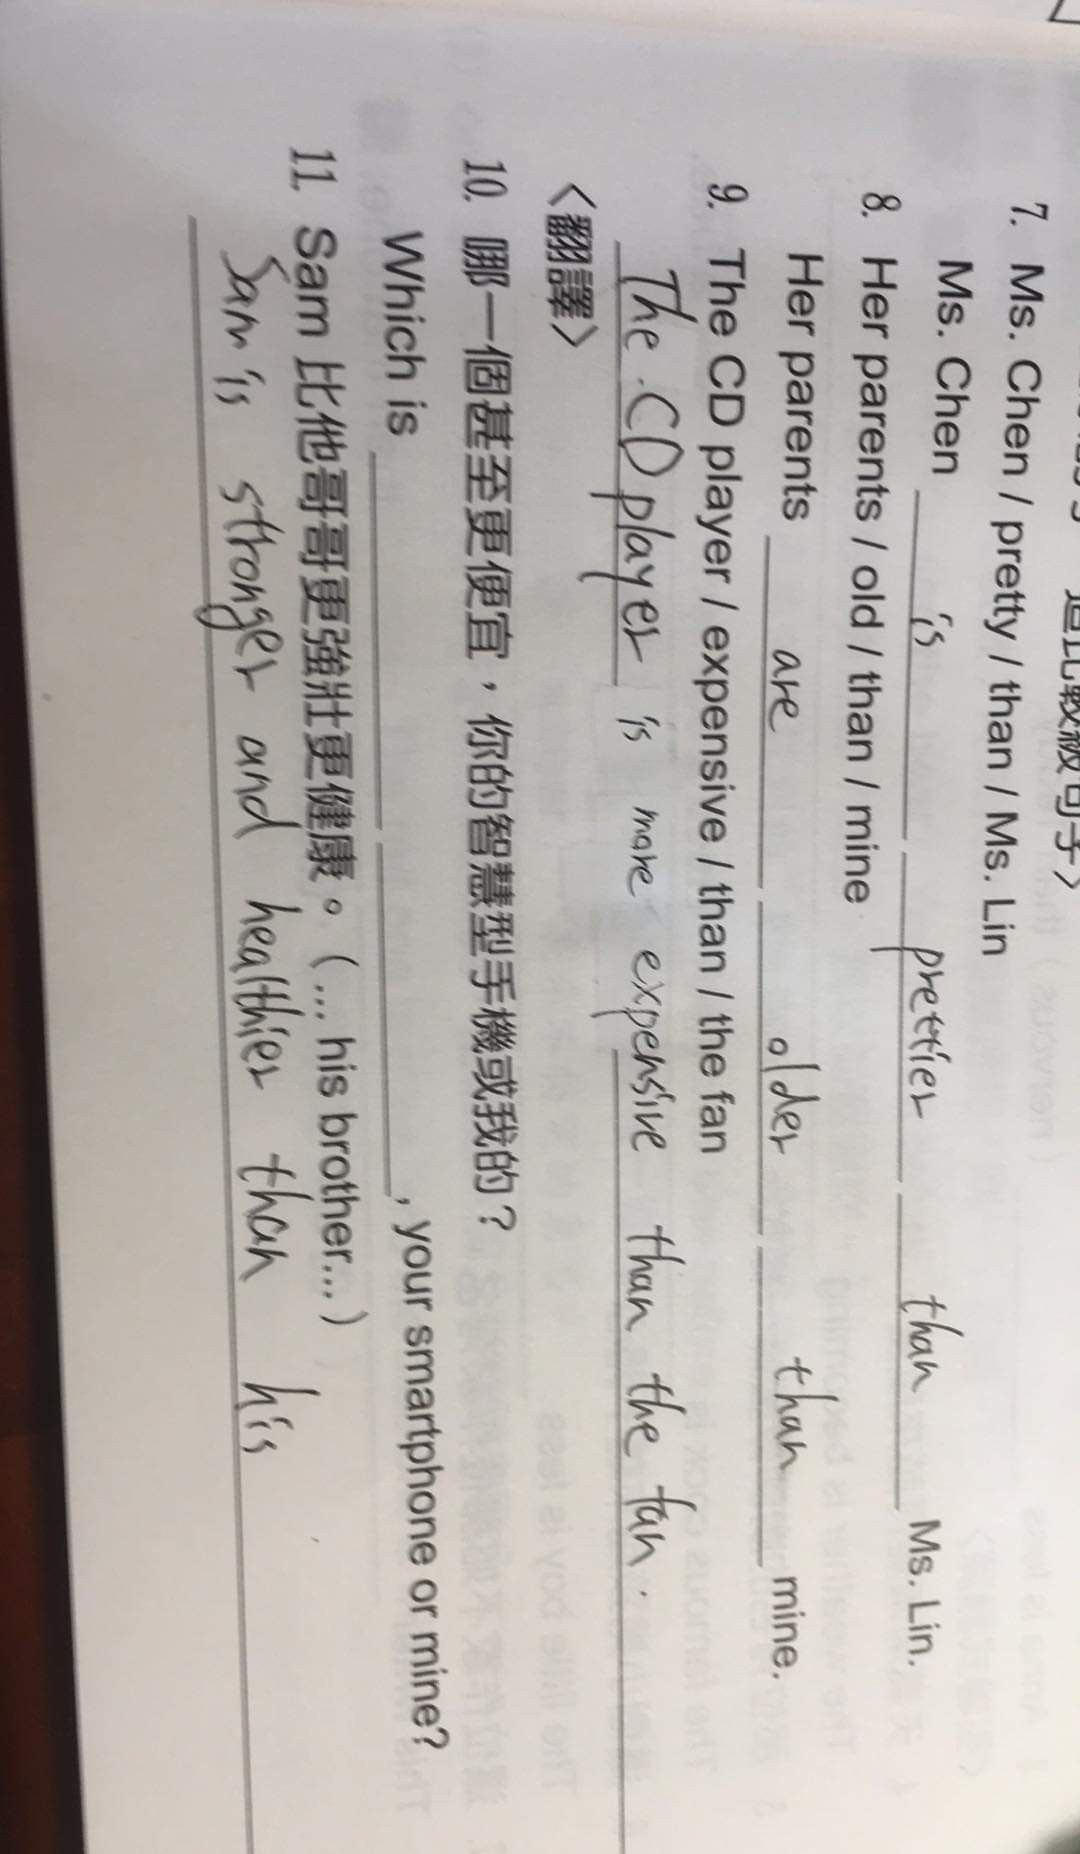 造比較級句子〉
7. Ms. Chen / pretty / than / Ms. Lin
Ms. Chen is prettier than Ms. Lin.
8. Her parents / old / than / mine
Her parents are older than mine.
9. The CD player / expensive / than / the fan
The CD player is more expensive than the fan.
〈翻譯〉
10. 哪一個甚至更便宜，你的智慧型手機或我的？
Which is ____ ____, your smartphone or mine?
11. Sam 比他哥哥更強壯更健康。(... his brother...)
Sam is stronger and healthier than his